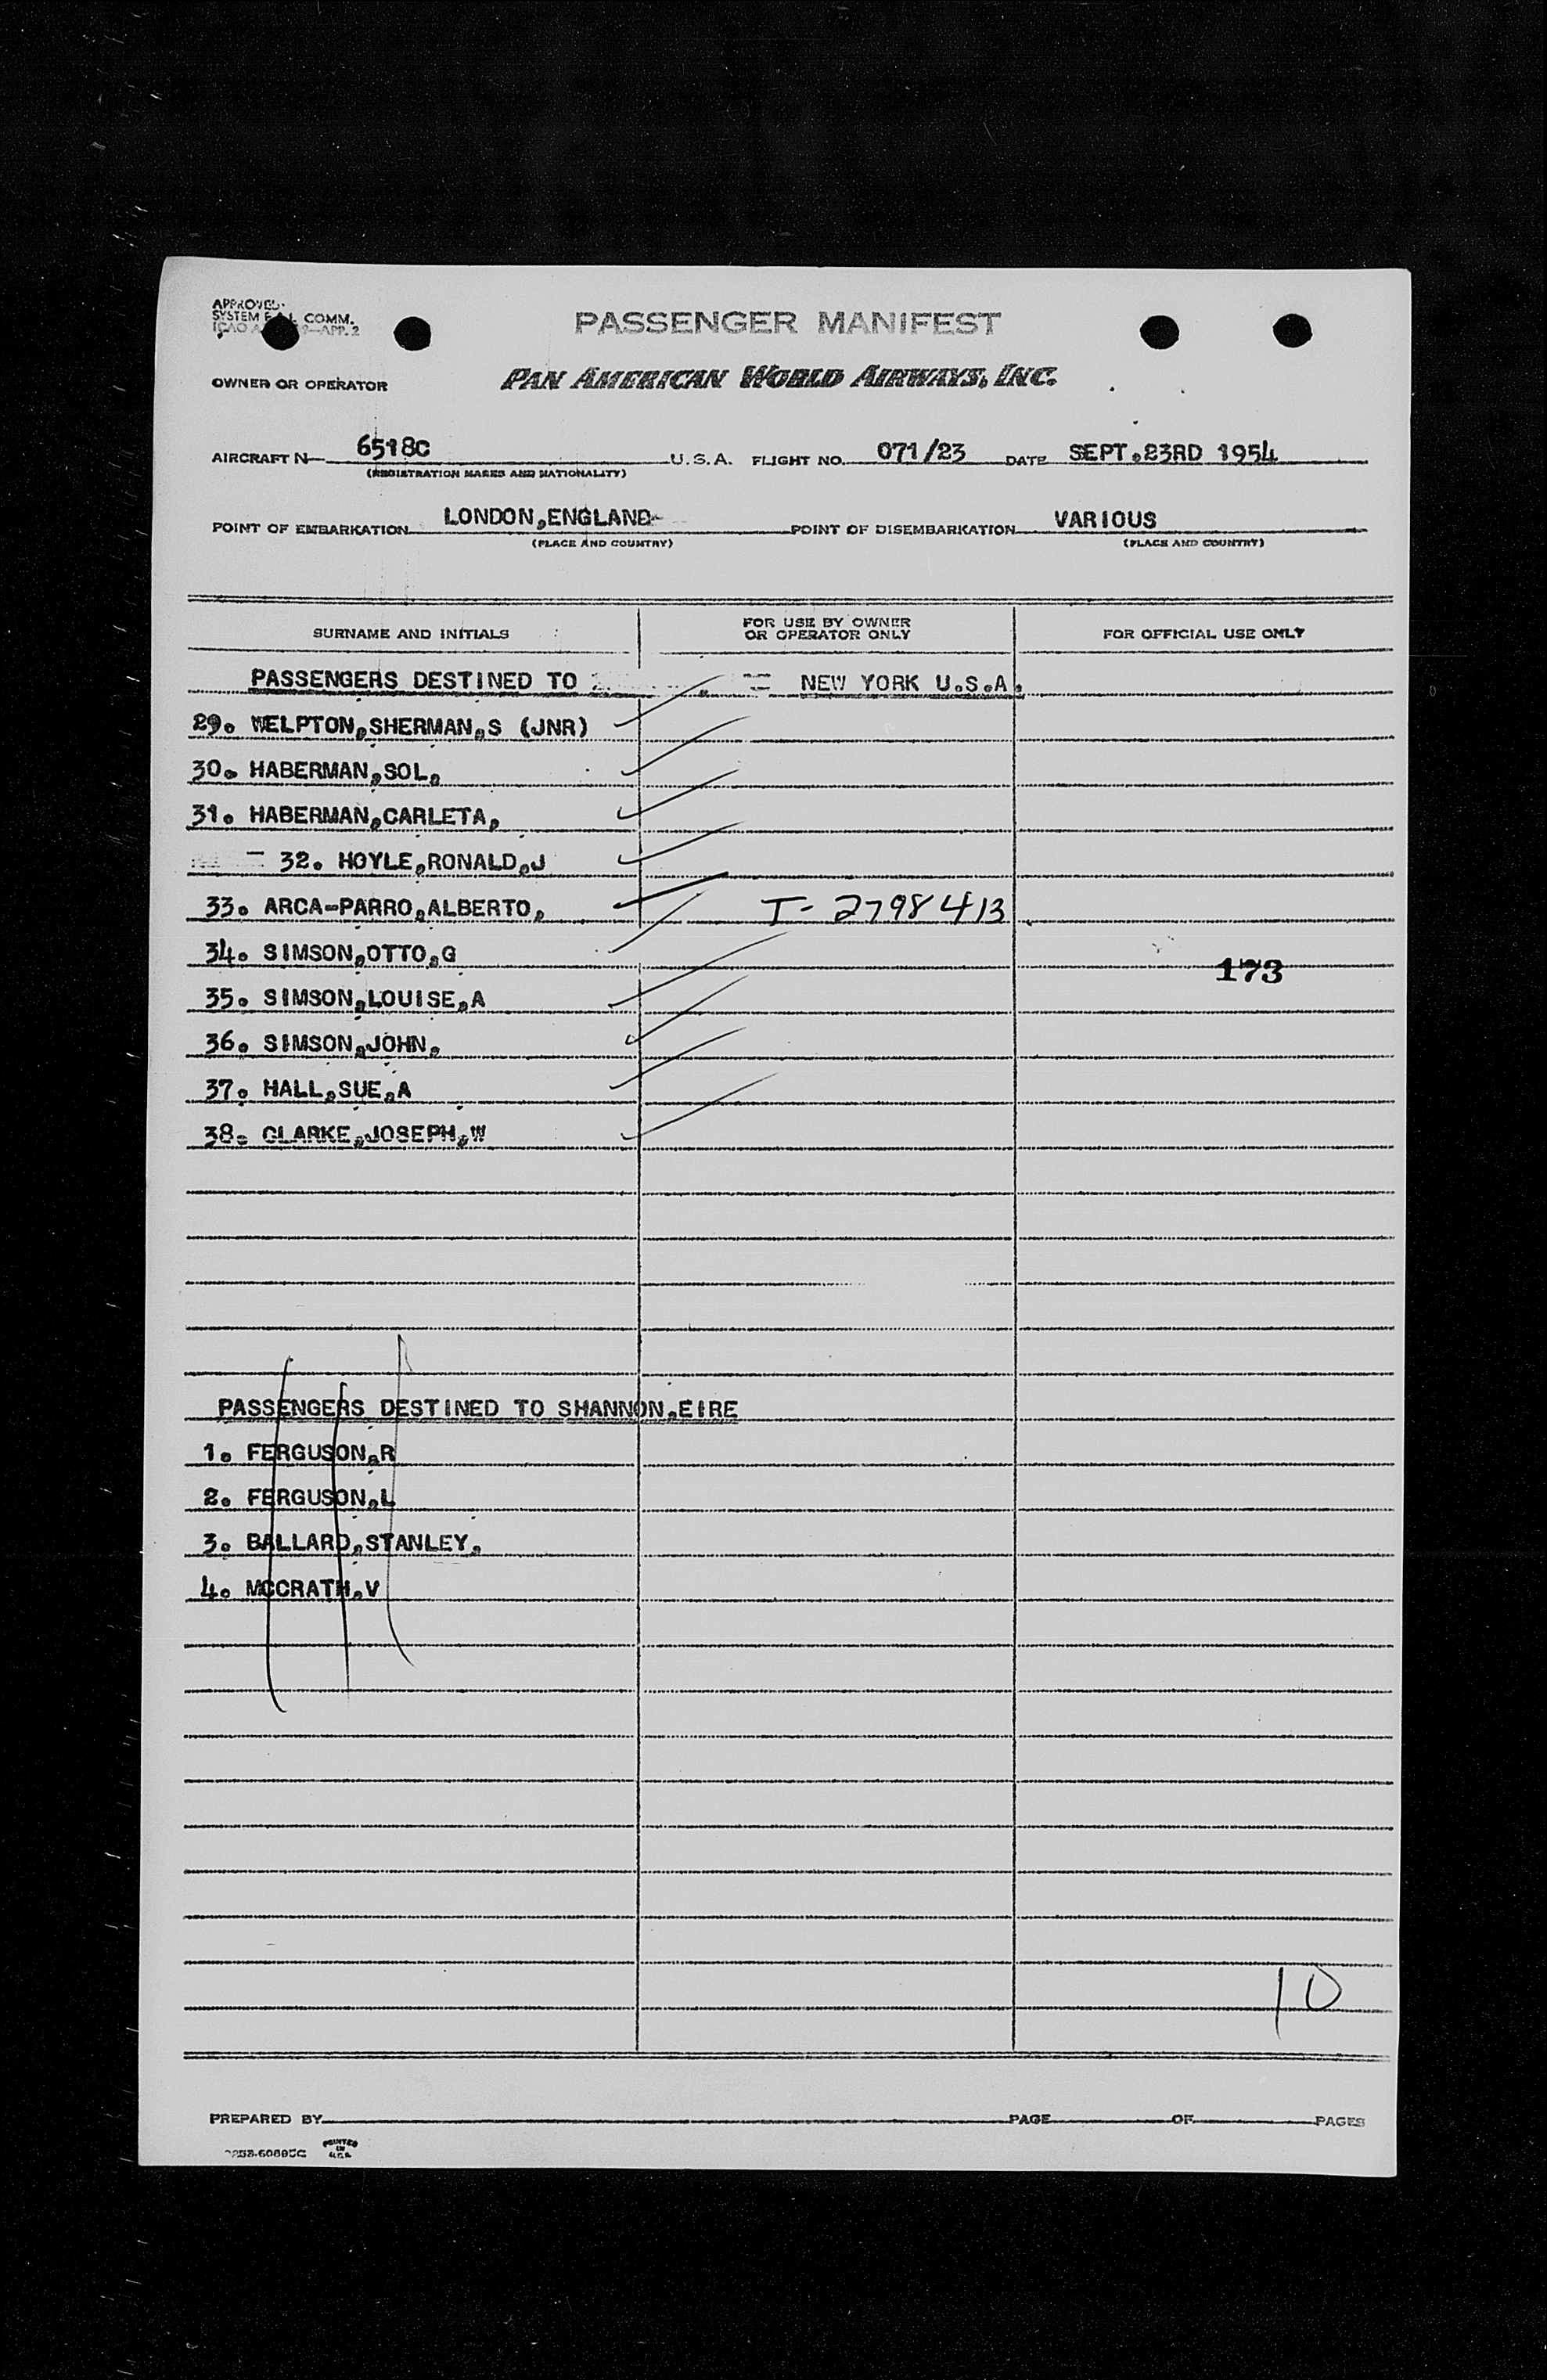 APPROVED
SYSTEM COMM.
ICAO APP. 2
PASSENGER MANIFEST
OWNER OR OPERATOR PAN AMERICAN WORLD AIRWAYS, INC.
AIRCRAFT N 6518C U.S.A. FLIGHT NO. 071/23 DATE SEPT.23RD 1954
(REGISTRATION MARKS AND NATIONALITY)
POINT OF EMBARKATION LONDON,ENGLAND POINT OF DISEMBARKATION VARIOUS
(PLACE AND COUNTRY) (PLACE AND COUNTRY)
SURNAME AND INITIALS FOR USE BY OWNER OR OPERATOR ONLY FOR OFFICIAL USE ONLY
PASSENGERS DESTINED TO NEW YORK U.S.A.
29. WELPTON,SHERMAN,S (JNR)
30. HABERMAN,SOL,
31. HABERMAN,CARLETA,
32. HOYLE,RONALD,J
33. ARCA-PARRO,ALBERTO, T- 2798413
34. SIMSON,OTTO,G
173
35. SIMSON,LOUISE,A
36. SIMSON,JOHN,
37. HALL,SUE,A
38. CLARKE,JOSEPH,W
PASSENGERS DESTINED TO SHANNON,EIRE
1. FERGUSON,R
2. FERGUSON,L
3. BALLARD,STANLEY,
4. MCCRATH,V
10
PREPARED BY PAGE OF PAGES
PRINTED
IN
U.S.A.